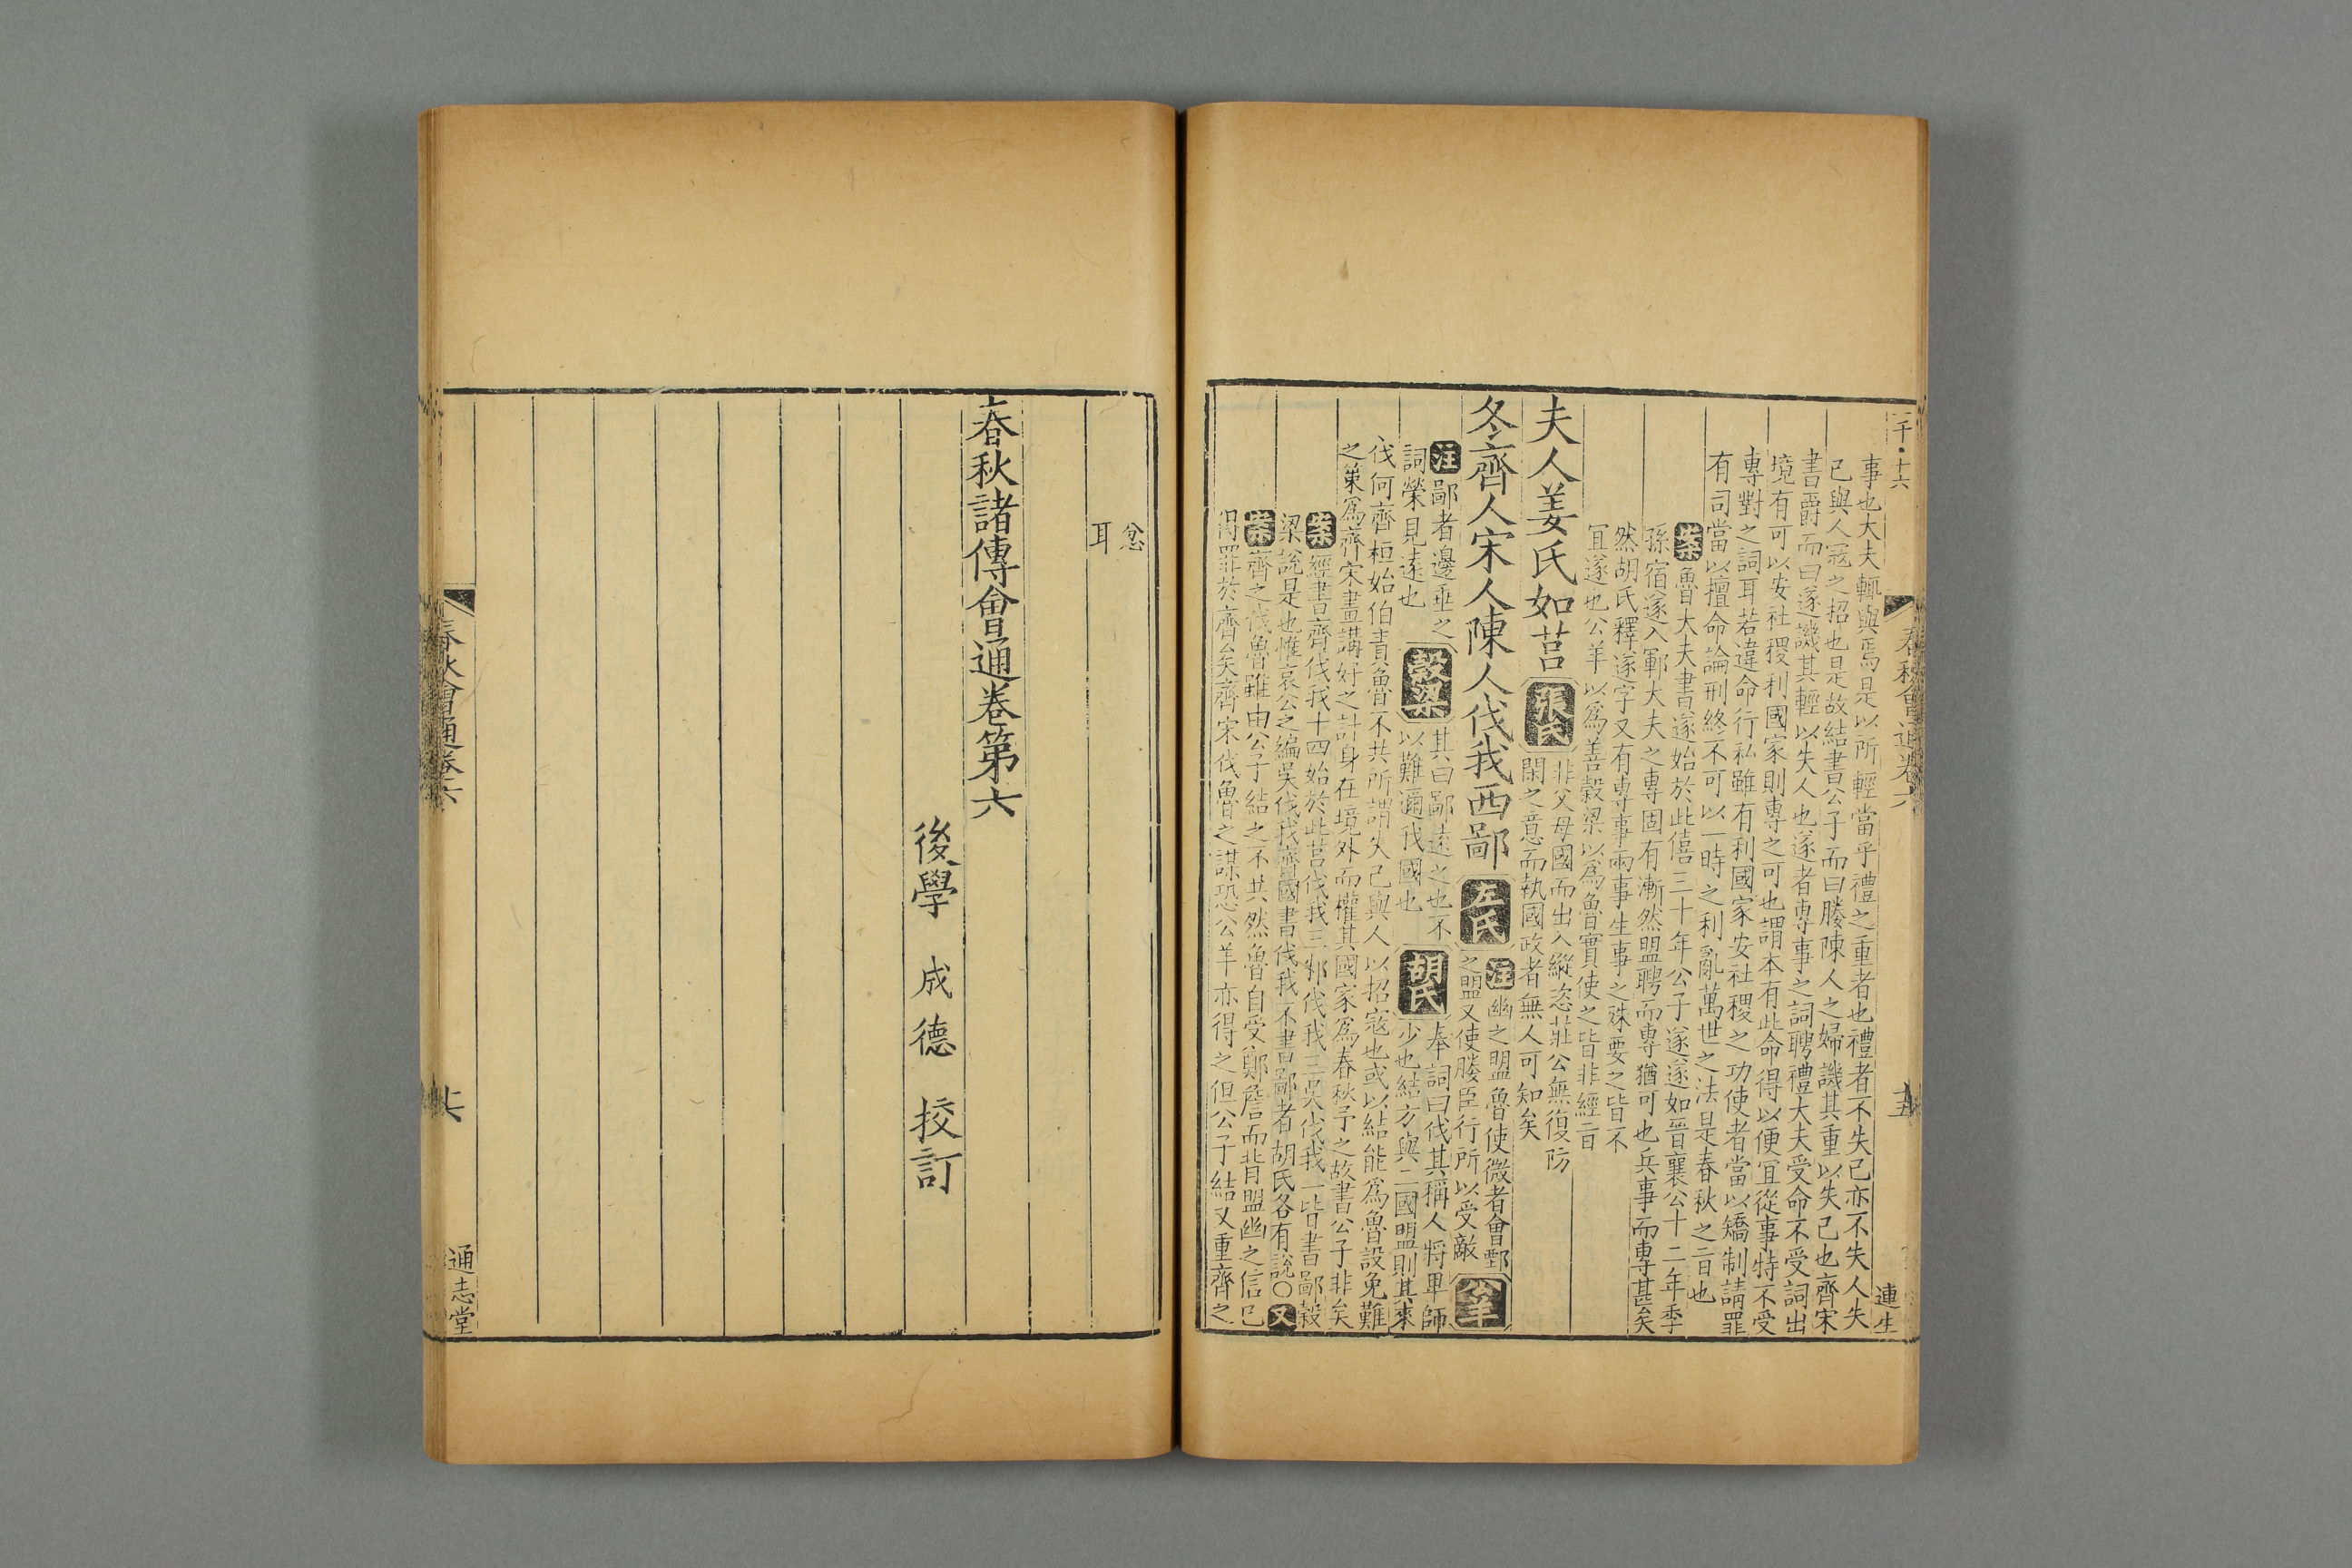 千·十六
春秋會通卷六
十五
連生
事也大夫輒與焉是以所輕當乎禮之重者也禮者不失己亦不失人失
己與人冦之招也是故結書公子而曰媵陳人之婦譏其重以失己也齊宋
書爵而曰遂譏其輕以失人也遂者專事之詞聘禮大夫受命不受詞出
境有可以安社稷利國家則專之可也謂本有此命得以便冝從事特不受
專對之詞耳若違命行私雖有利國家安社稷之功使者當以矯制請罪
有司當以擅命論刑終不可以一時之利亂萬世之法是春秋之㫖也
案魯大夫書遂始於此僖三十年公子遂遂如晉襄公十二年季
孫宿遂入鄆大夫之專固有漸然盟聘而專猶可也兵事而專甚矣
然胡氏釋遂字又有專事兩事生事之殊要之皆不
冝遂也公羊以為善穀梁以為魯實使之皆非經㫖
夫人姜氏如莒張氏非父母國而出入縱恣莊公無復防
閑之意而執國政者無人可知矣
冬齊人宋人陳人伐我西鄙左氏注幽之盟魯使微者會鄄
之盟又使媵臣行所以受敵公羊
注鄙者邊垂之詞榮見遠也穀梁其曰鄙遠之也不以難邇我國也胡氏奉詞曰伐其稱人將卑師
少也結方與二國盟則其來
伐何齊桓始伯責魯不共所謂失己與人以招寇也或以結能為魯設免難
之策為齊宋畫講好之計身在境外而權其國家為春秋予之故書公子非矣
案經書齊伐我十四始於此莒伐我三邾伐我三吳伐我一皆書鄙穀
梁說是也惟哀公之編吳伐我齊國書伐我不書鄙者胡氏各有說○又
案齊之伐魯雖由公子結之不共然魯自受鄭詹而背盟幽之信已
得罪於齊矣齊宋伐魯之謀恐公羊亦得之但公子結又重齊之
忿
耳
春秋諸傳會通卷第六
後學 成德 校訂
春秋會通卷六
十六
通志堂